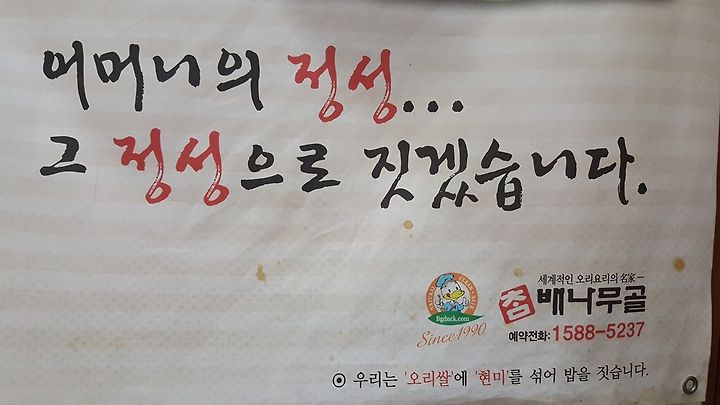 어머니의 정성...
그 정성으로 짓겠습니다.
세계적인 오리요리의 名家
참 배나무골
Bgduck.com
Since 1990
예약전화: 1588-5237
⊙ 우리는 '오리쌀'에 '현미'를 섞어 밥을 짓습니다.